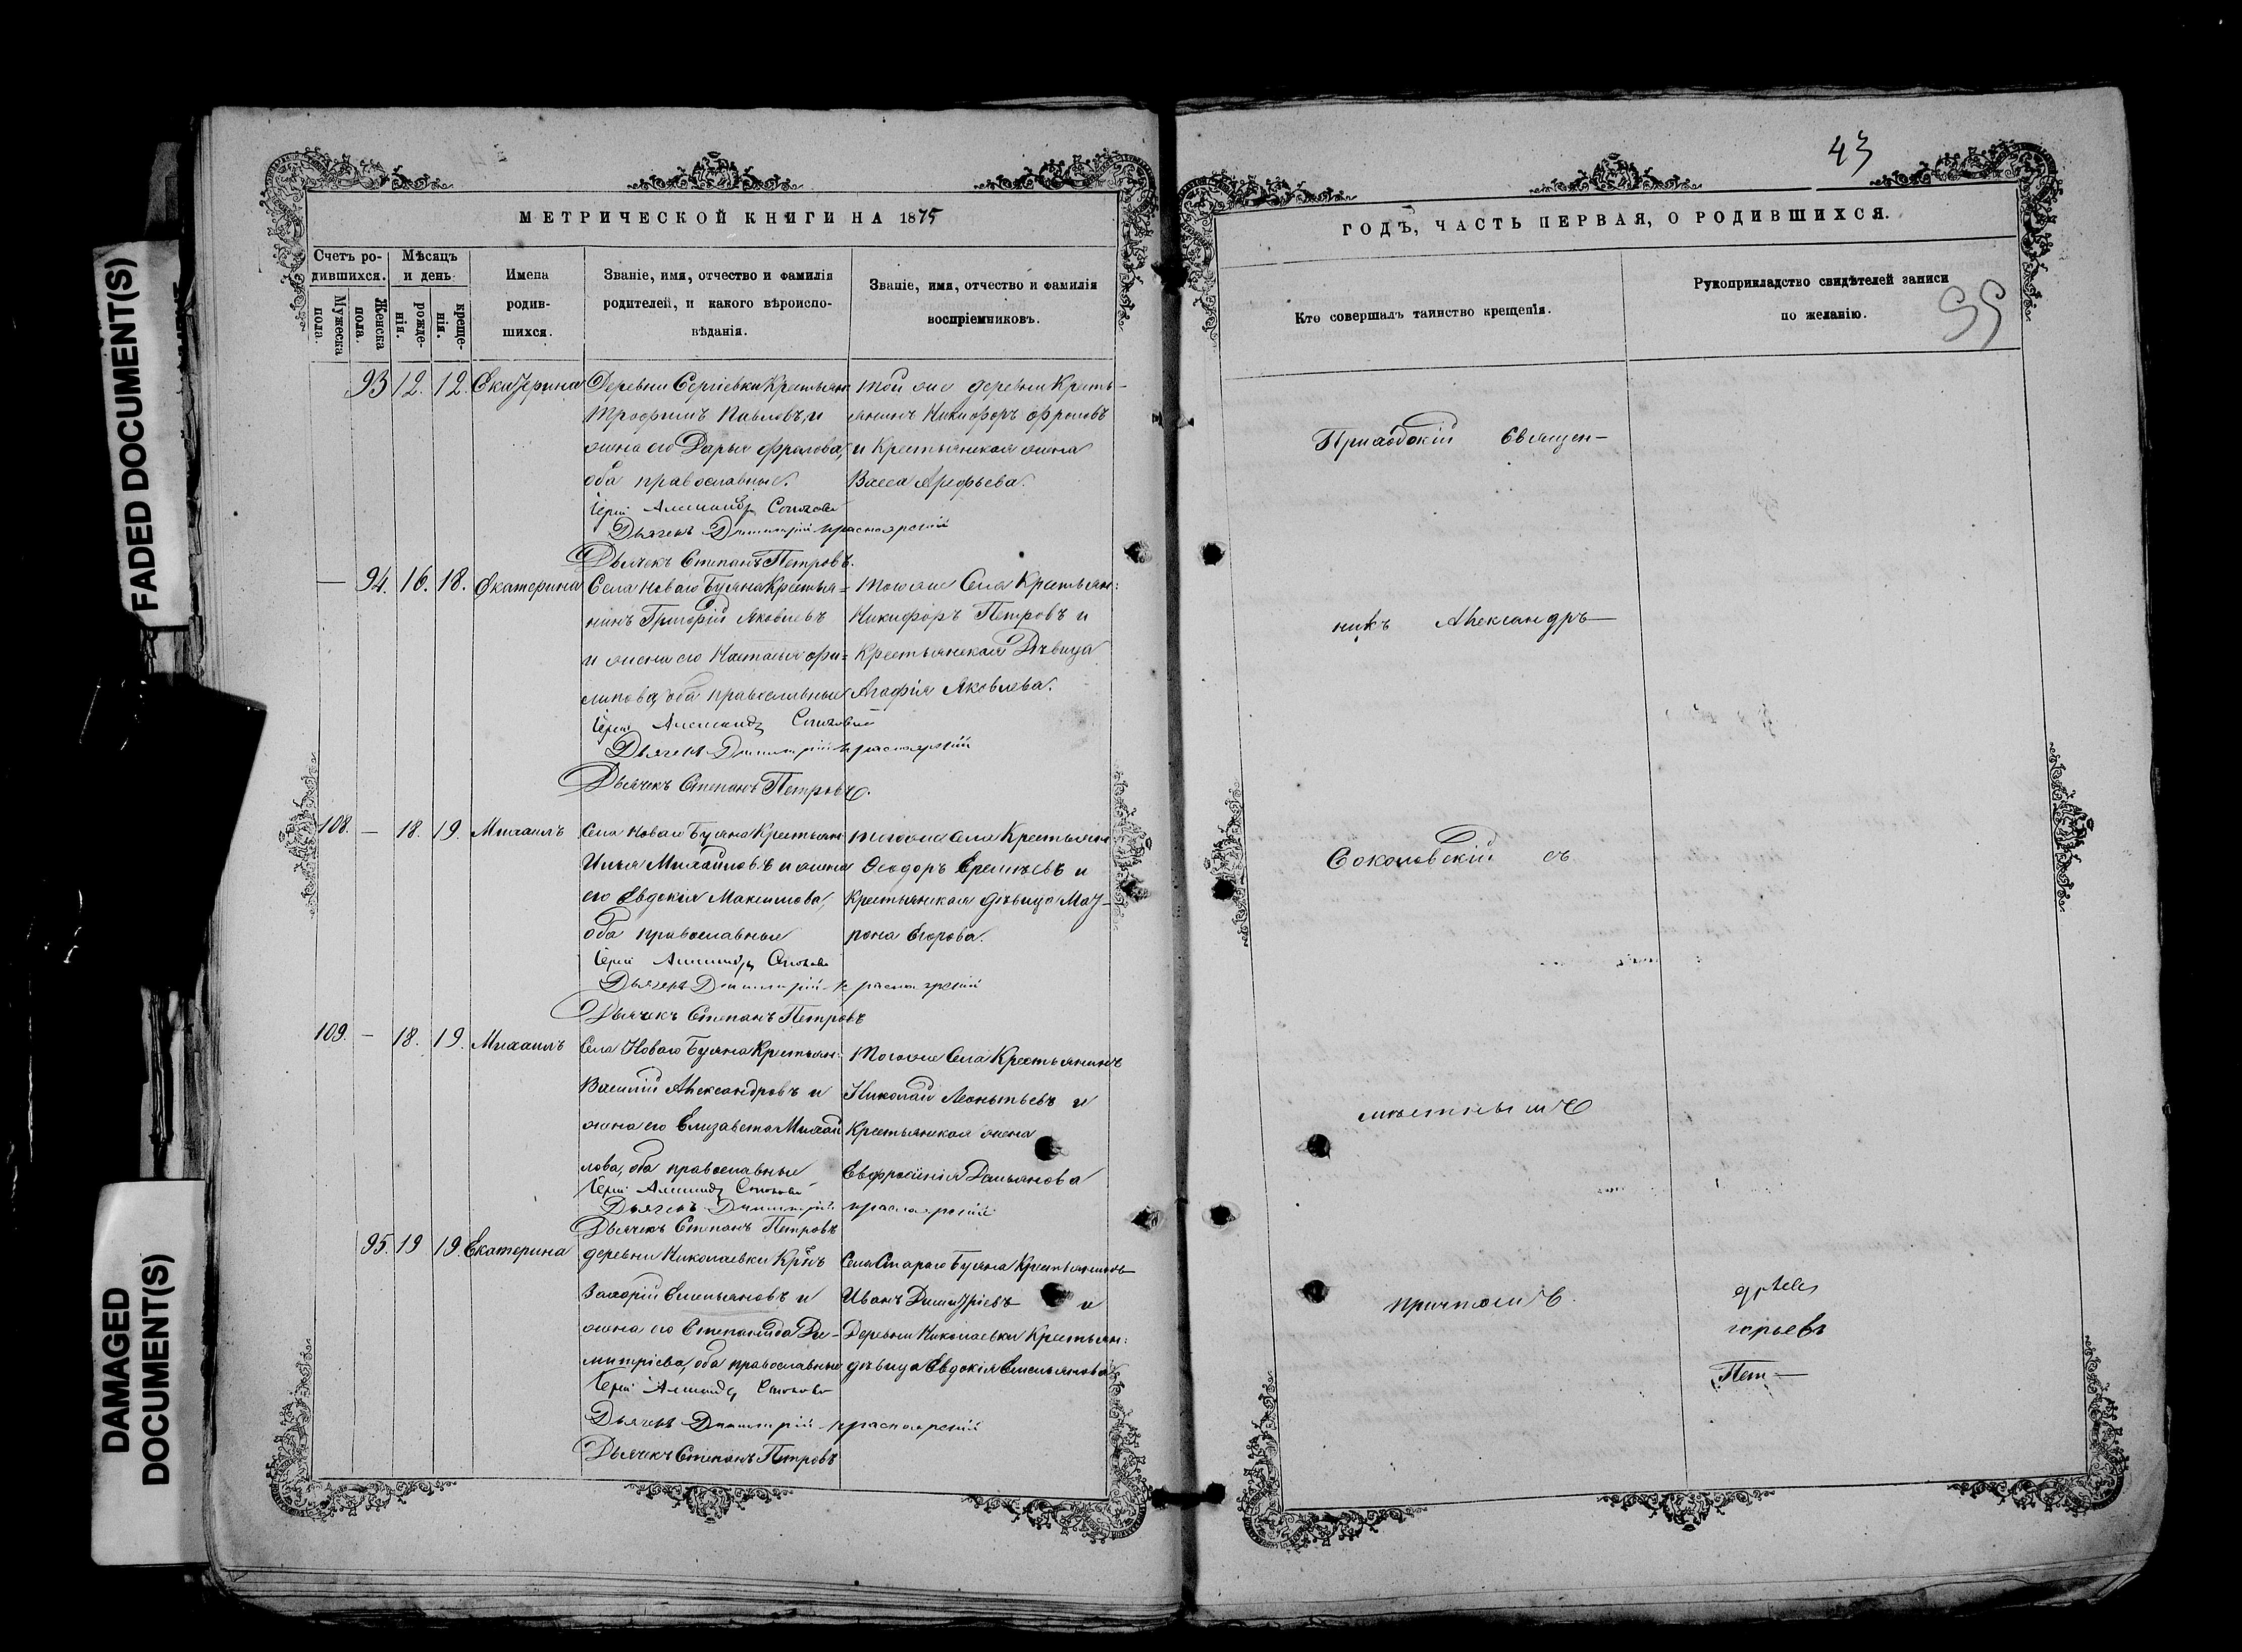 FADED DOCUMENT(S)
DAMAGED
DOCUMENT(S)
МЕТРИЧЕСКОЙ КНИГИ НА 1875
Счетъ ро-
дившихся.
Мужеска
пола.
Женска
пола.
Мѣсяцъ
и день
рожде-
нія.
креще-
нія.
Имена
родив-
шихся.
Званіе, имя, отчество и фамилія
родителей, и какого вѣроиспо-
вѣданія.
Званіе, имя, отчество и фамилія
воспріемниковъ.
93 12. 12. Екатерина
Деревни Сергіевки Крестьян
Трофимъ Павловъ, и
жена его Дарья Фролова,
оба православные.
Іерей Александръ Соколовскій
Дьячекъ Димитрій Красноярскій
Дьячекъ Степанъ Петровъ.
той же деревни Кресть-
янинъ Никифоръ Фроловъ
и Крестьянская жена
Васса Арефьева.
— 94. 16. 18. Екатерина
Села Новаго Буяна Крестья=
нинъ Григорій Яковлевъ
и жена его Настасья Фи=
липова, оба православные
Іерей Александръ Соколовскій
Дьячекъ Димитрій Красноярскій
Дьячекъ Степанъ Петровъ.
того же Села Крестьян:
Никифоръ Петровъ и
Крестьянская Дѣвица
Агафія Яковлева.
108. — 18. 19. Михаилъ
Села Новаго Буяна Крестьян:
Илья Михайловъ и жена
его Евдокія Максимова,
оба православные
Іерей Александръ Соколовскій
Дьячекъ Димитрій Красноярскій
Дьячекъ Степанъ Петровъ
того же Села Крестьян:
Ѳеодоръ Еремѣевъ и
Крестьянская дѣвица Мат-
рона Егорова.
109. — 18. 19. Михаилъ
Села Новаго Буяна Крестьян:
Василій Александровъ и
жена его Елизавета Михай
лова, оба православные
Іерей Александръ Соколовскій
Дьячекъ Димитрій Красноярскій
Дьячекъ Степанъ Петровъ
того же Села Крестьянинъ
Николай Леонтьевъ и
Крестьянская жена
Евфросинія Демьянова
95. 19 19. Екатерина
деревни Николаевки Кр̃нъ
Захарій Емельяновъ и
жена его Степанида Ди-
митріева, оба православные
Іерей Александръ Соколовскій
Дьячекъ Димитрій Красноярскій
Дьячекъ Степанъ Петровъ
Села Стараго Буяна Крестьянинъ
Иванъ Димитріевъ и
Деревни Николаевки Крестьян:
дѣвица Евдокія Емельянова
43
ГОДЪ, ЧАСТЬ ПЕРВАЯ, О РОДИВШИХСЯ.
Кто совершалъ таинство крещенія.
Рукоприкладство свидѣтелей записи
по желанію.
Приходскій Священ-
никъ Александръ
Соколовскій съ
мѣстнымъ
причтомъ.
Пет—